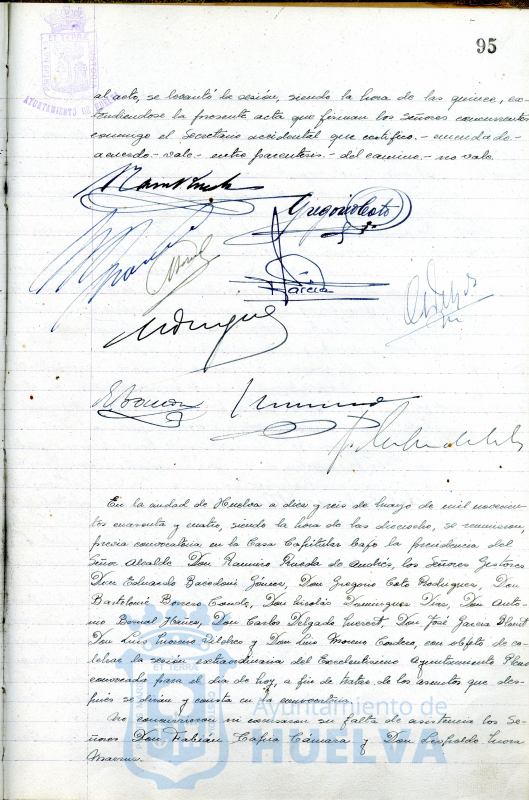 95
AYUNTAMIENTO DE HUELVA
al acto, se levantó la sesión, siendo la hora de las quince, ex-
tendiéndose la presente acta que firman los Señores concurrentes
conmigo el Secretario accidental que certifico.- enmendado-
acuerdo- vale.- entre parentesis.- del camino.- no vale.
Gregorio Coto
García
En la ciudad de Huelva a diez y seis de mayo de mil novecien-
tos cuarenta y cuatro, siendo la hora de las dieciocho, se reunieron,
previa convocatoria en la Casa Capitular bajo la presidencia del
Señor Alcalde Don Ramiro Rueda de Andrés, los Señores Gestores
Don Eduardo Bacedoni Gómez, Don Gregorio Coto Rodriguez, Don
Bartolomé Borrero Conde, Don Nicolás Dominguez Diaz, Don Anto-
nio Bernal Ibañez, Don Carlos Delgado Don José Garcia
Don Luis Moreno y Don Luis Moreno Cordero, con objeto de ce-
lebrar la sesión extraordinaria del Excelentisimo Ayuntamiento Pleno
convocada para el dia de hoy, a fin de tratar de los asuntos que des-
pués se dirán y consta en la convocatoria.
No concurrieron ni excusaron su falta de asistencia los Se-
ñores Don Fabián Tapia Cámara y Don Leopoldo Mora
Ayuntamiento de
HUELVA